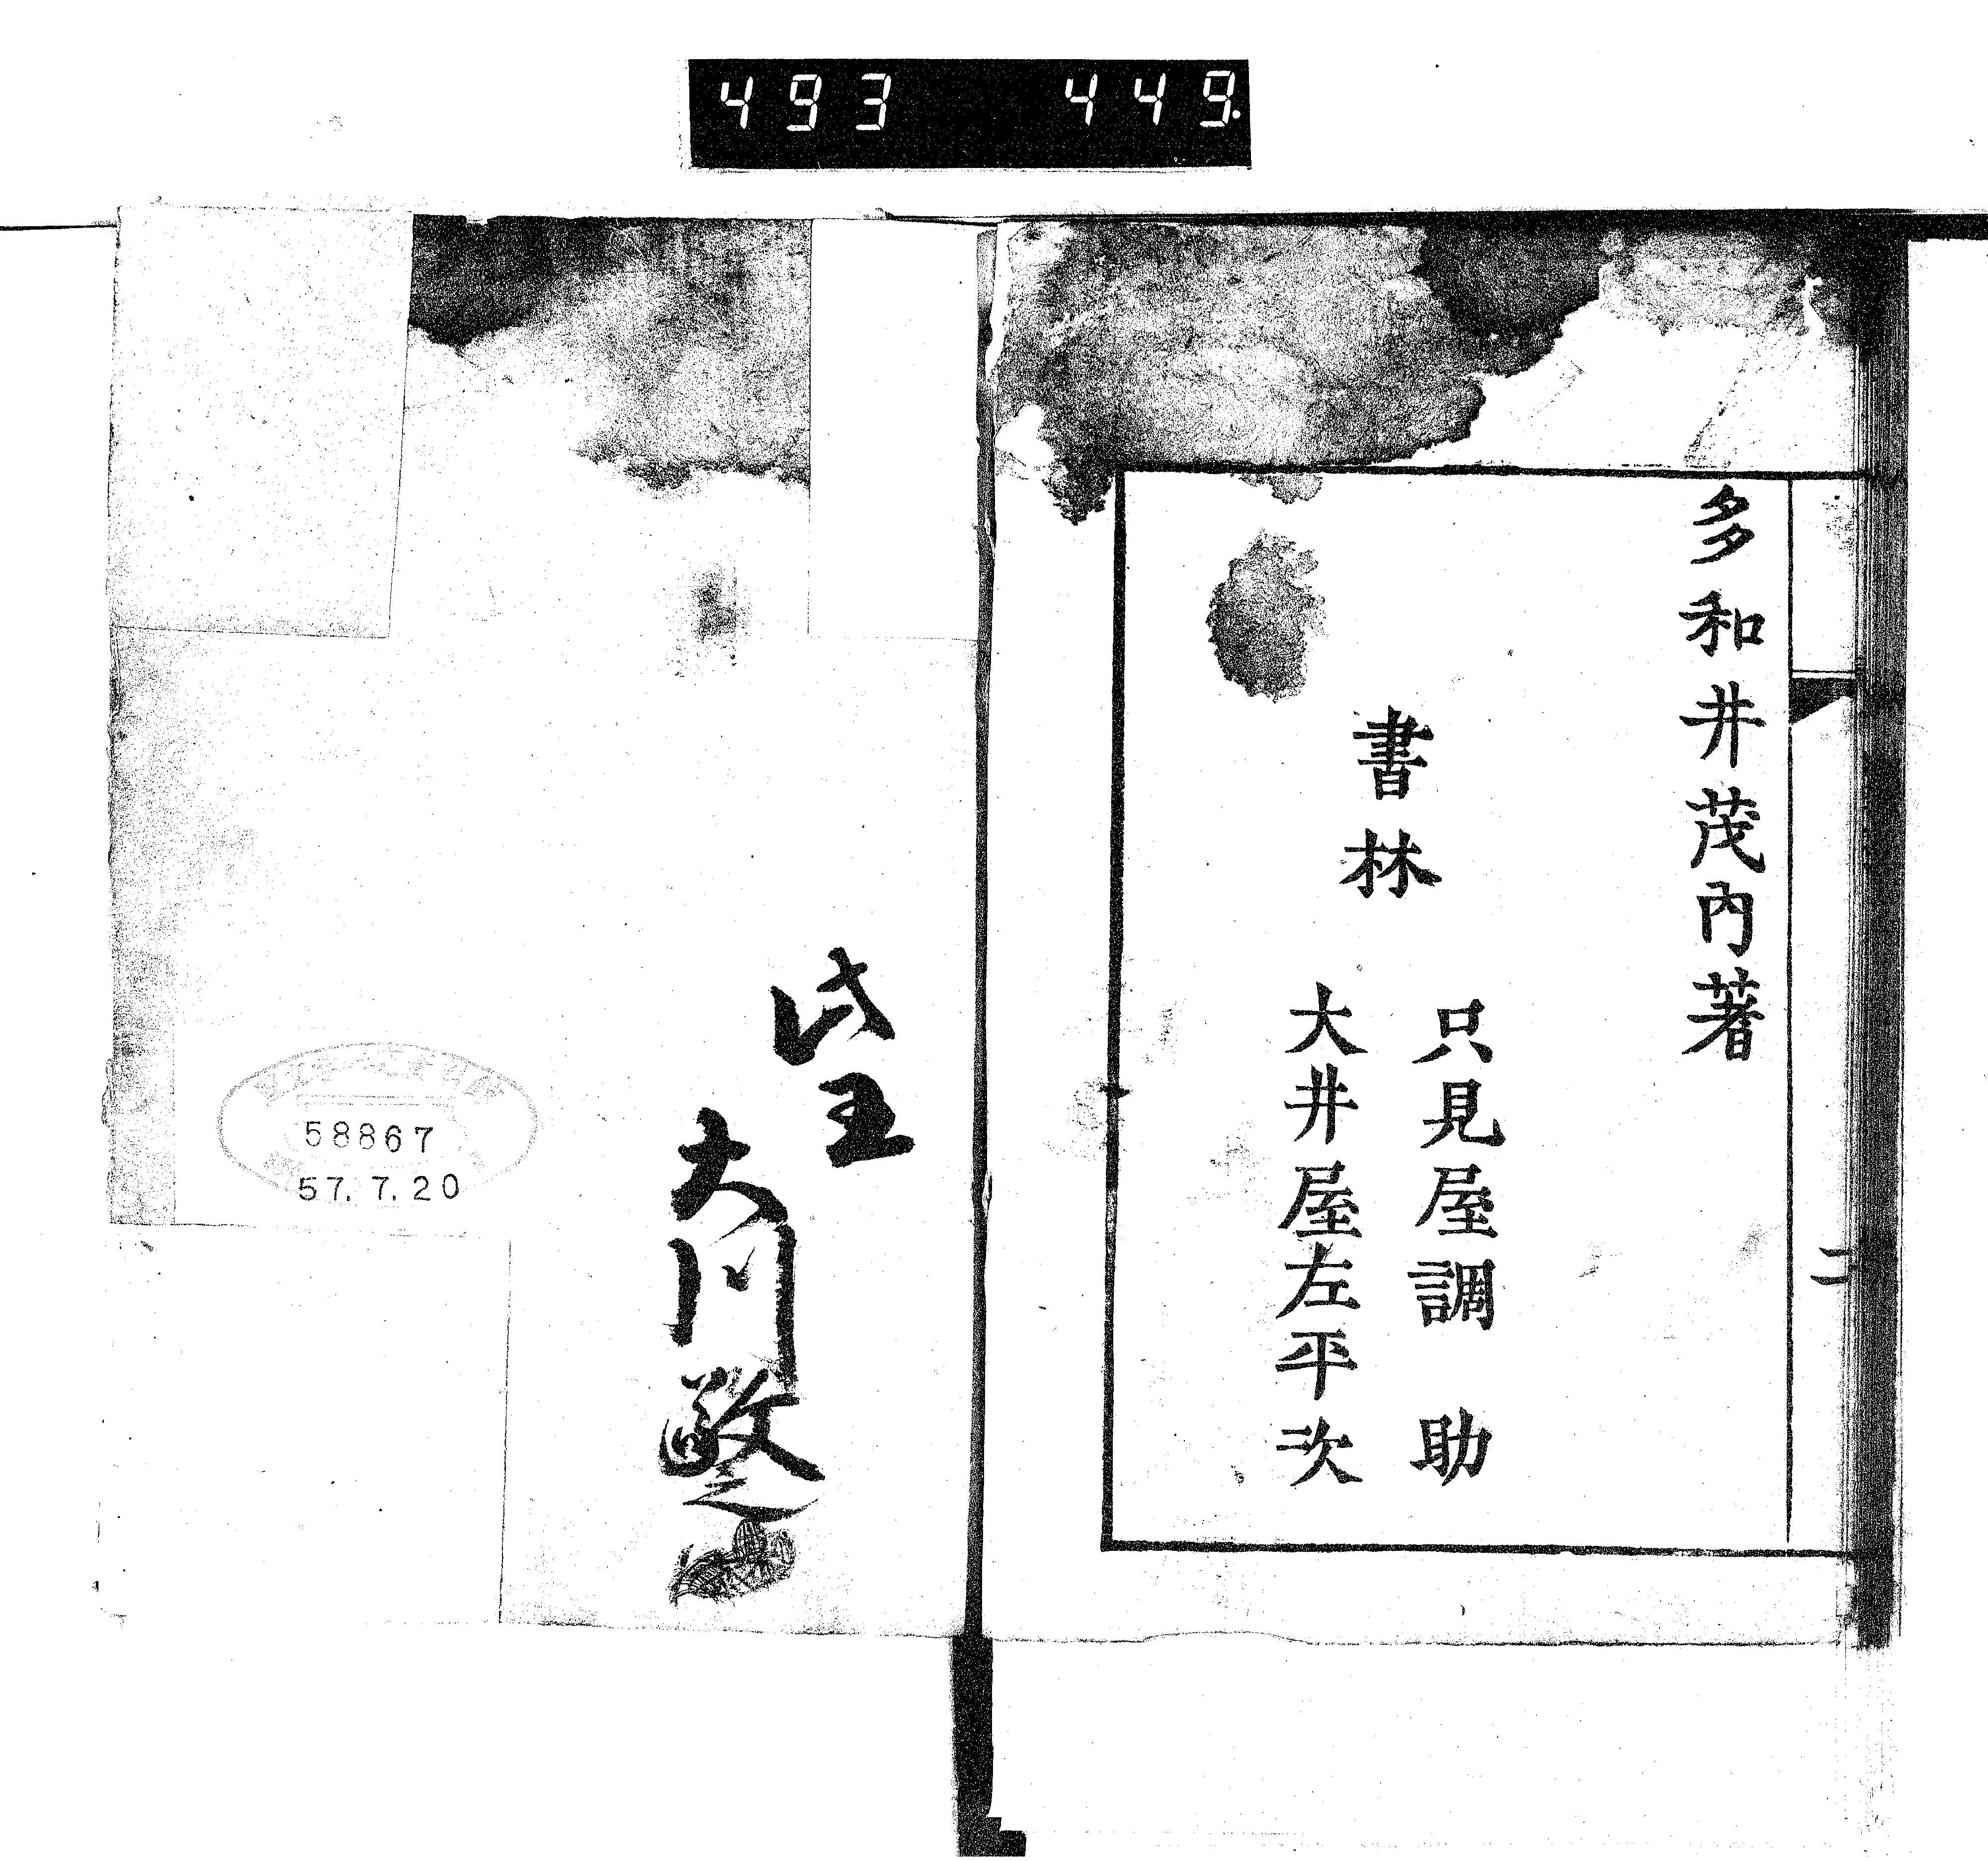 493 449.
多和井茂內著
二
書林
只見屋調助
大井屋左平次
主
大川
58867
57.7.20